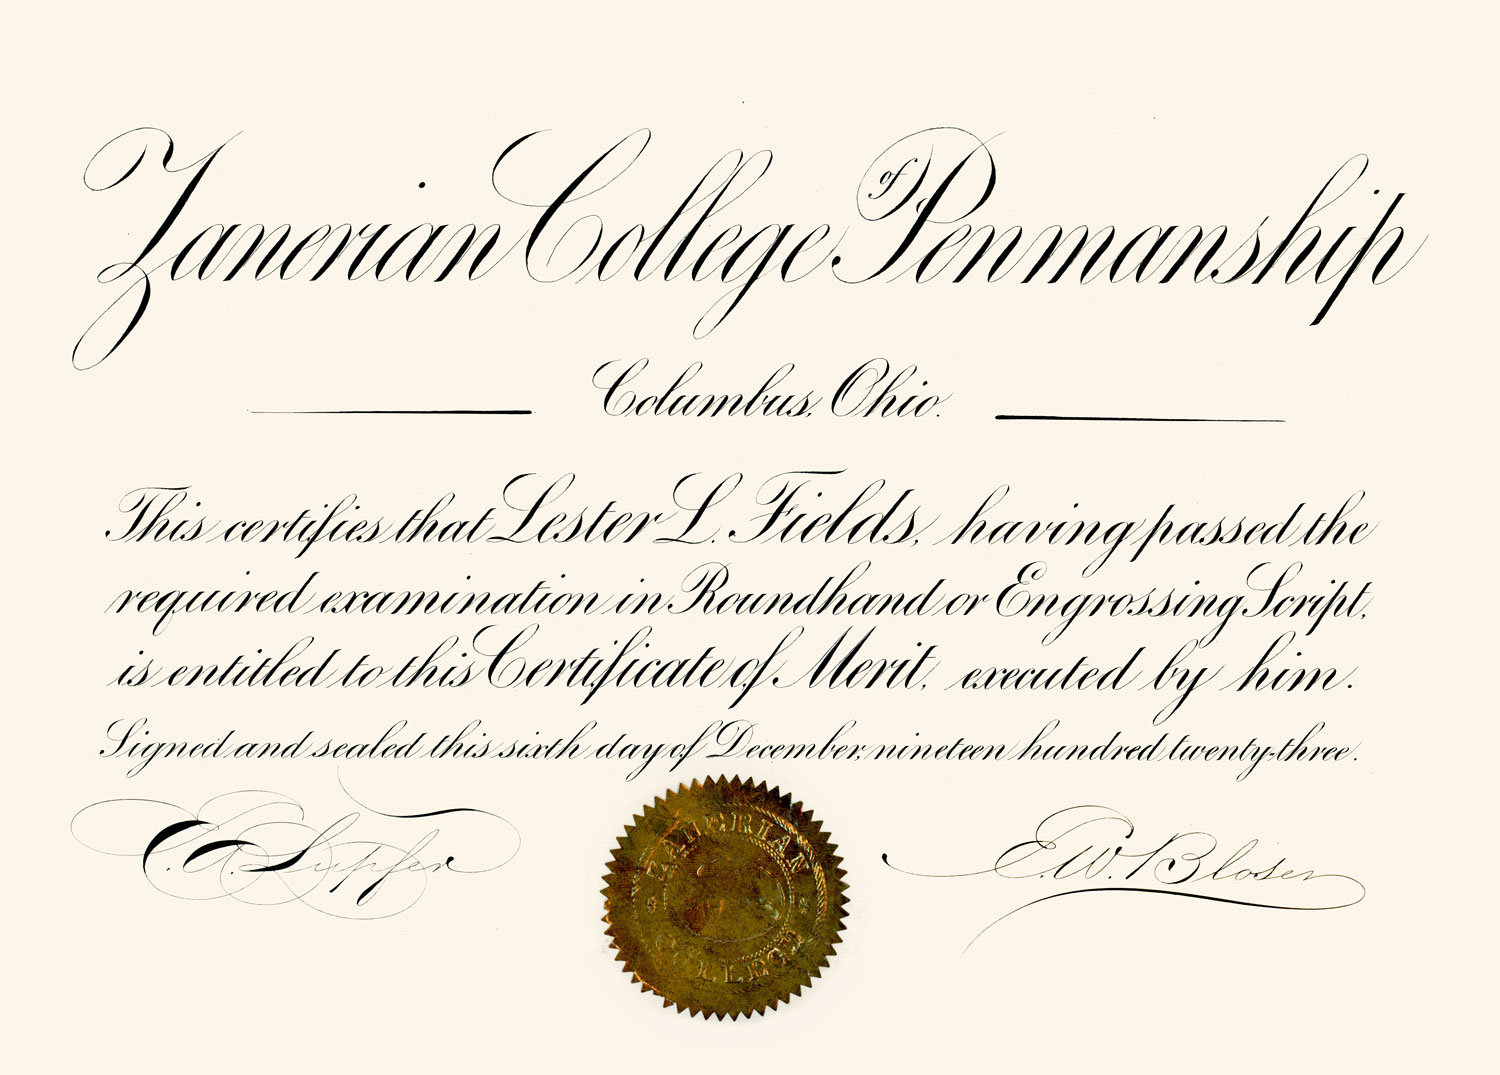 Zanerian College of Penmanship
Columbus, Ohio.
This certifies that Lester L. Fields, having passed the
required examination in Roundhand or Engrossing Script,
is entitled to this Certificate of Merit, executed by him.
Signed and sealed this sixth day of December, nineteen hundred twenty-three.
E. A. Lupfer
E. W. Bloser
ZANERIAN
COLLEGE